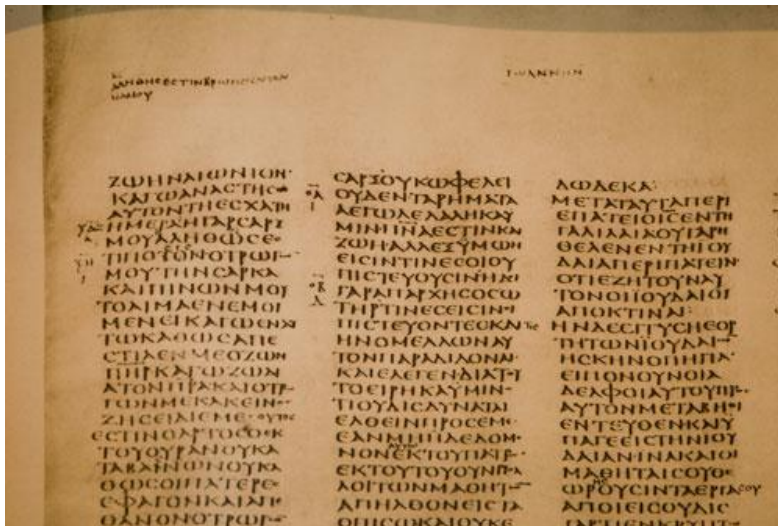 ΙΩΑΝΝΗΝ
ΖΩΗΝΑΙΩΝΙΟΝ·
ΚΑΓΩΑΝΑϹΤΗϹΩ
ΑΥΤΟΝΤΗΕϹΧΑΤΗ
ΗΜΕΡΑΗΓΑΡϹΑΡΞ
ΜΟΥΑΛΗΘΩϹΕϹ
ΤΙΠΟΤΟΝΟΤΡΩΓ
ΜΟΥΤΗΝϹΑΡΚΑ
ΚΑΙΠΙΝΩΝΜΟΥ
ΤΟΑΙΜΑΕΝΕΜΟΙ
ΜΕΝΕΙΚΑΓΩΕΝΑΥ
ΤΩΚΑΘΩϹΑΠΕ
ϹΤΙΛΕΝΜΕΟΖΩΝ
ΠΗΡΚΑΓΩΖΩΔΙ
ΑΤΟΝΠΡΑΚΑΙΟΤΡΩ
ΓΩΝΜΕΚΑΚΕΙΝΟϹ
ΖΗϹΕΙΔΙΕΜΕ·ΟΥΤΟϹ
ΕϹΤΙΝΟΑΡΤΟϹΟΕΚ
ΤΟΥΟΥΡΑΝΟΥΚΑ
ΤΑΒΑΙΝΩΝΟΥΚΑ
ΘΩϹΟΙΠΑΤΕΡΕϹ
ΕΦΑΓΟΝΚΑΙΑΠΕ
ΘΑΝΟΝΟΤΡΩΓ
ϹΑΡΞΟΥΚΩΦΕΛΕΙ
ΟΥΔΕΝΤΑΡΗΜΑΤΑ
ΑΕΓΩΛΕΛΑΛΗΚΑΥ
ΜΙΝΠΝΑΕϹΤΙΝΚΑΙ
ΖΩΗΑΛΛΕΞΥΜΩΝ
ΕΙϹΙΝΤΙΝΕϹΟΙΟΥ
ΠΙϹΤΕΥΟΥϹΙΝΗΔΙ
ΓΑΡΑΠΑΡΧΗϹΟϹΩ
ΤΗΡΤΙΝΕϹΕΙϹΙΝΟΙ
ΠΙϹΤΕΥΟΝΤΕϹΚΑΙΤΙϹ
ΗΝΟΜΕΛΛΩΝΑΥ
ΤΟΝΠΑΡΑΔΙΔΟΝΑΙ
ΚΑΙΕΛΕΓΕΝΔΙΑΤΟΥ
ΤΟΕΙΡΗΚΑΥΜΙΝΟ
ΤΙΟΥΔΙϹΔΥΝΑΤΑΙ
ΕΛΘΕΙΝΠΡΟϹΕΜΕ
ΕΑΝΜΗΗΔΕΔΟΜΕ
ΝΟΝΕΚΤΟΥΠΑΤΡΟϹ
ΕΚΤΟΥΤΟΥΟΥΝΠΟΛ
ΛΟΙΤΩΝΜΑΘΗΤΩ
ΑΠΗΛΘΟΝΕΙϹΤΑ
ΟΠΙϹΩΚΑΙΟΥΚΕ
ΔΩΔΕΚΑ·
ΜΕΤΑΤΑΥΤΑΠΕΡΙ
ΕΠΑΤΕΙΟΙϹΕΝΤΗ
ΓΑΛΙΛΑΙΑΟΥΓΑΡΗ
ΘΕΛΕΝΕΝΤΗΙΟΥ
ΔΑΙΑΠΕΡΙΠΑΤΕΙΝ·
ΟΤΙΕΖΗΤΟΥΝΑΥ
ΤΟΝΟΙΙΟΥΔΑΙΟΙ
ΑΠΟΚΤΙΝΑΙ·
ΗΝΔΕΕΓΓΥϹΗΕΟΡ
ΤΗΤΩΝΙΟΥΔΑΙΩ
ΗϹΚΗΝΟΠΗΓΙΑ·
ΕΙΠΟΝΟΥΝΟΙΑ
ΔΕΛΦΟΙΑΥΤΟΥΠΡΟϹ
ΑΥΤΟΝΜΕΤΑΒΗΘΙ
ΕΝΤΕΥΘΕΝΚΑΙΥ
ΠΑΓΕΕΙϹΤΗΝΙΟΥ
ΔΑΙΑΝΙΝΑΚΑΙΟΙ
ΜΑΘΗΤΑΙϹΟΥΘΕ
ΩΡΟΥϹΙΝΤΑΕΡΓΑϹΟΥ
ΑΠΟΙΕΙϹΟΥΔΙϹ